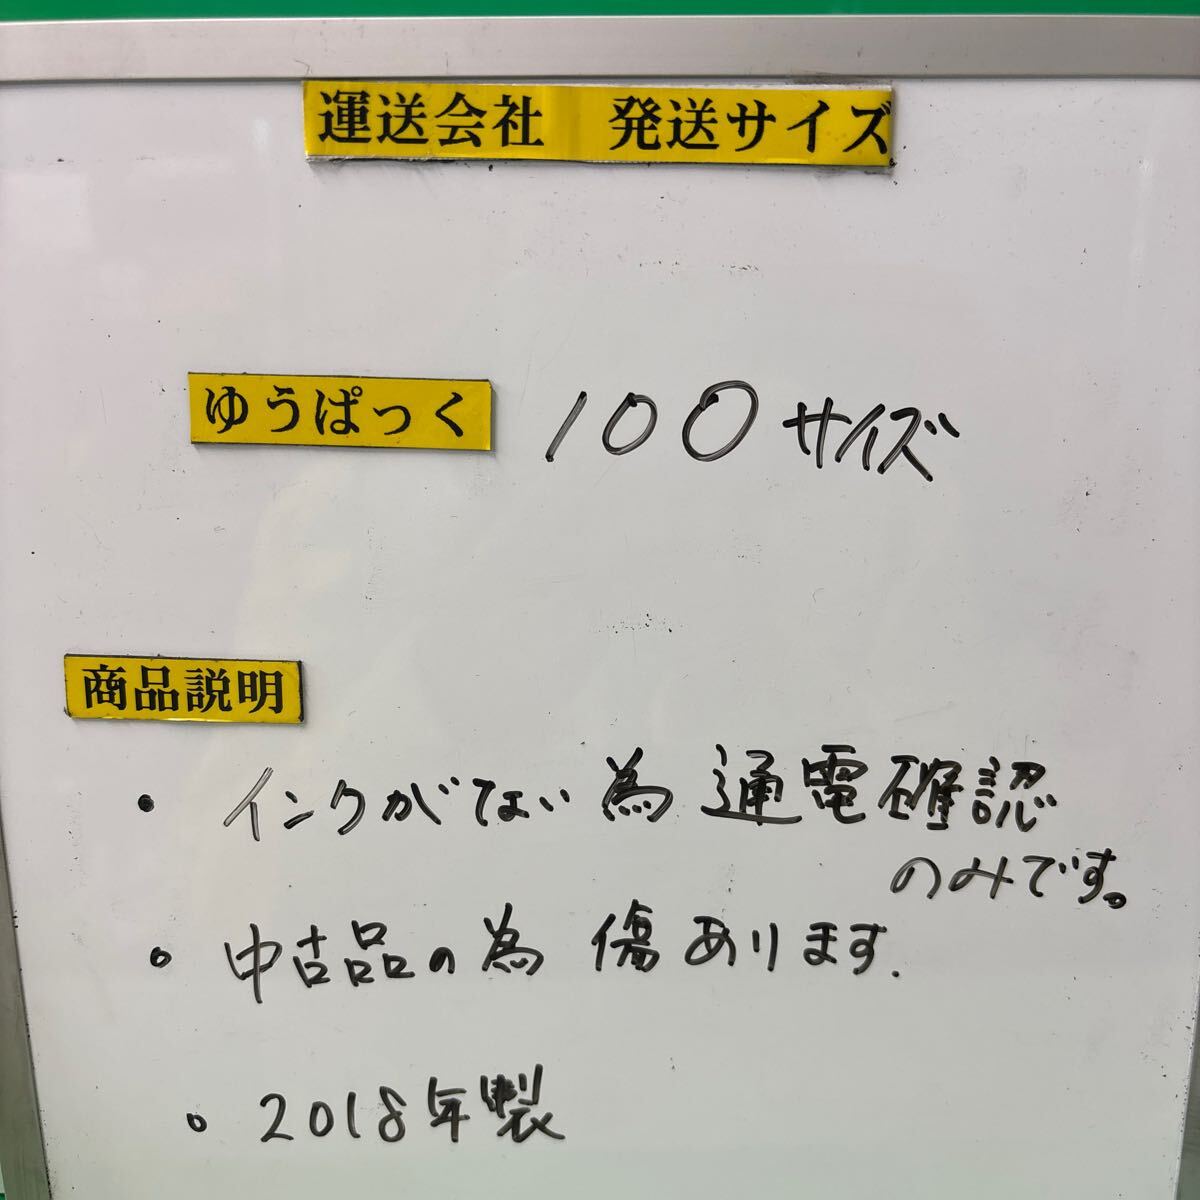 運送会社　発送サイズ
ゆうぱっく 100サイズ
商品説明
・インクがない為 通電確認
のみです。
・中古品の為 傷あります.
・2018年製